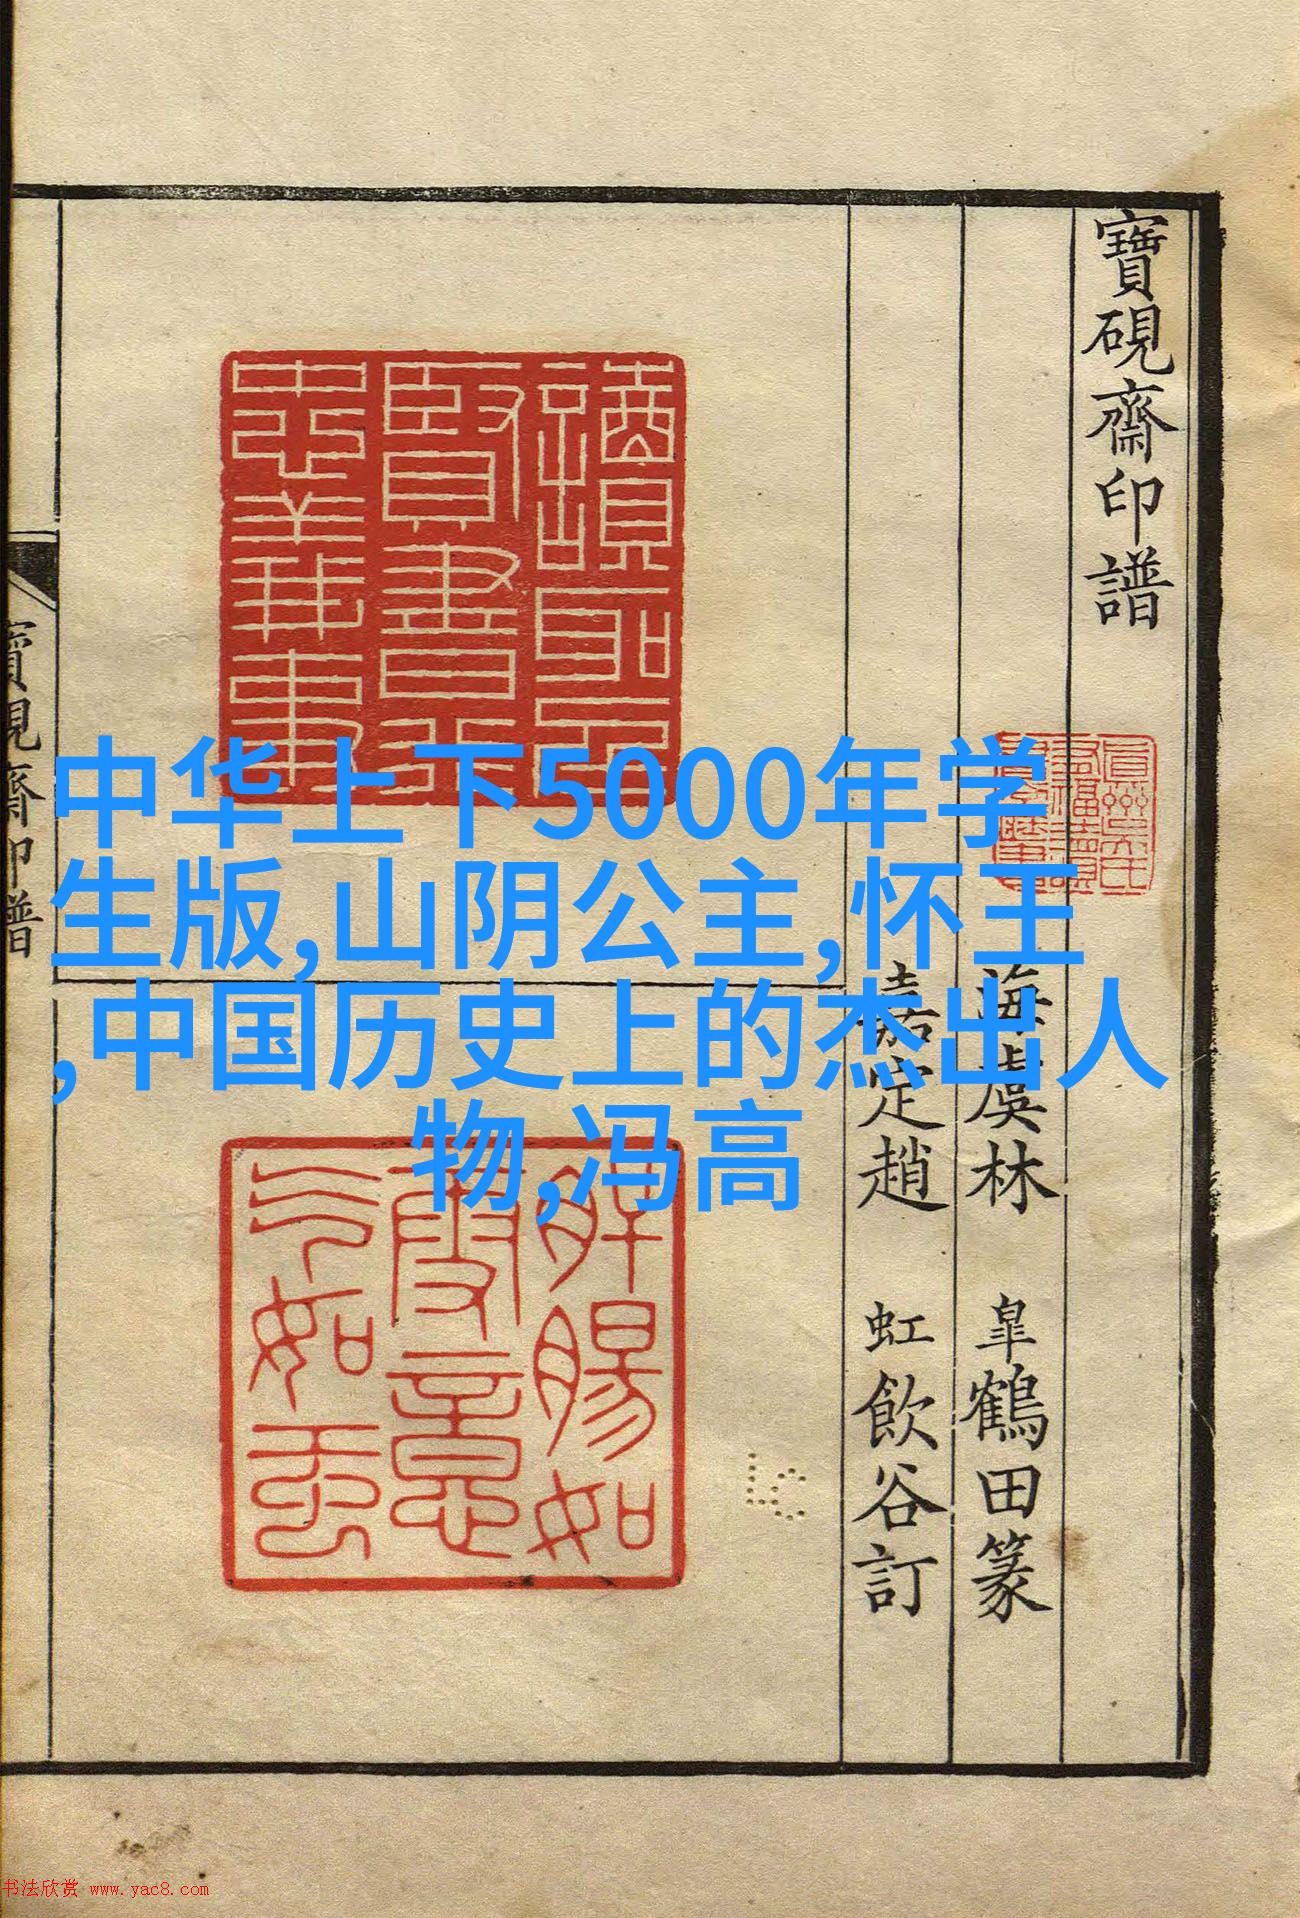 中华上下5000年学
生版,山阴公主,怀王
,中国历史上的杰出人
物,冯高
寶硯齋印譜
海虞林 皐鶴田篆
嘉定趙 虹飲谷訂
讀聖
賢書行
忠義事
寶硯齋印譜
书法欣赏 www.yac8.com